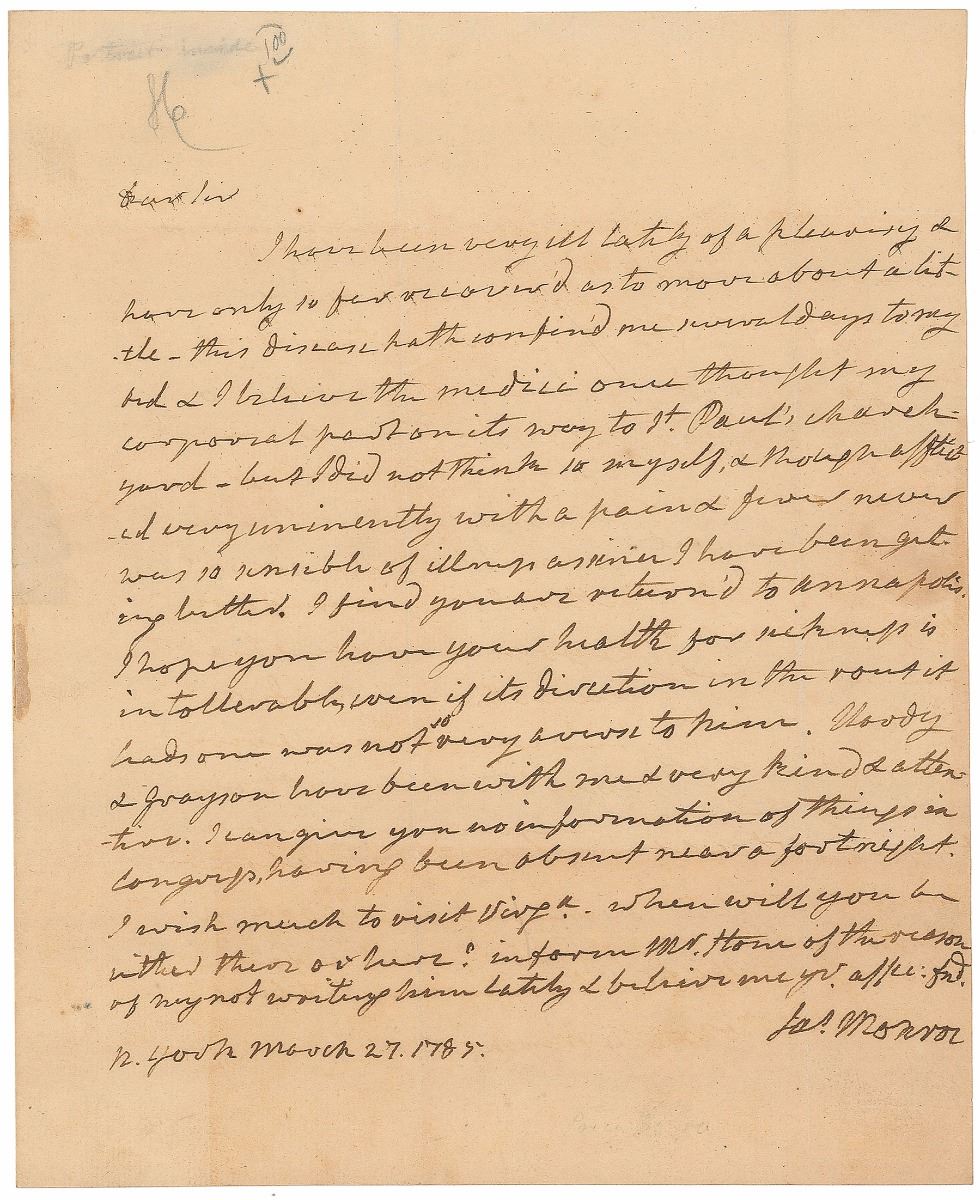 Portrait inside
100
+
Dear Sir
I have been very ill lately of a pleurisy &
have only so far recover'd as to move about a lit-
-tle - this disease hath confin'd me several days to my
bed & I believe the medici once thought my
corporeal part on its way to St. Paul's church-
yard - but I did not think so myself, & though afflict
-ed very eminently with a pain & fever never
was so sensible of illness as since I have been get-
ing better. I find you are return'd to Annapolis.
I hope you have your health for sickness is
intollerable, even if its direction in the rout it
leads one was not so very averse to him. Hardy
& Grayson have been with me & very kind & atten-
-tive. I can give you no information of things in
Congress, having been absent near a fortnight.
I wish much to visit Virga. when will you be
either there or here? inform Mr. Stone of the reason
of my not writing him lately & believe me yr. affec: fnd.
Jas. Monroe
N. York March 27. 1785.